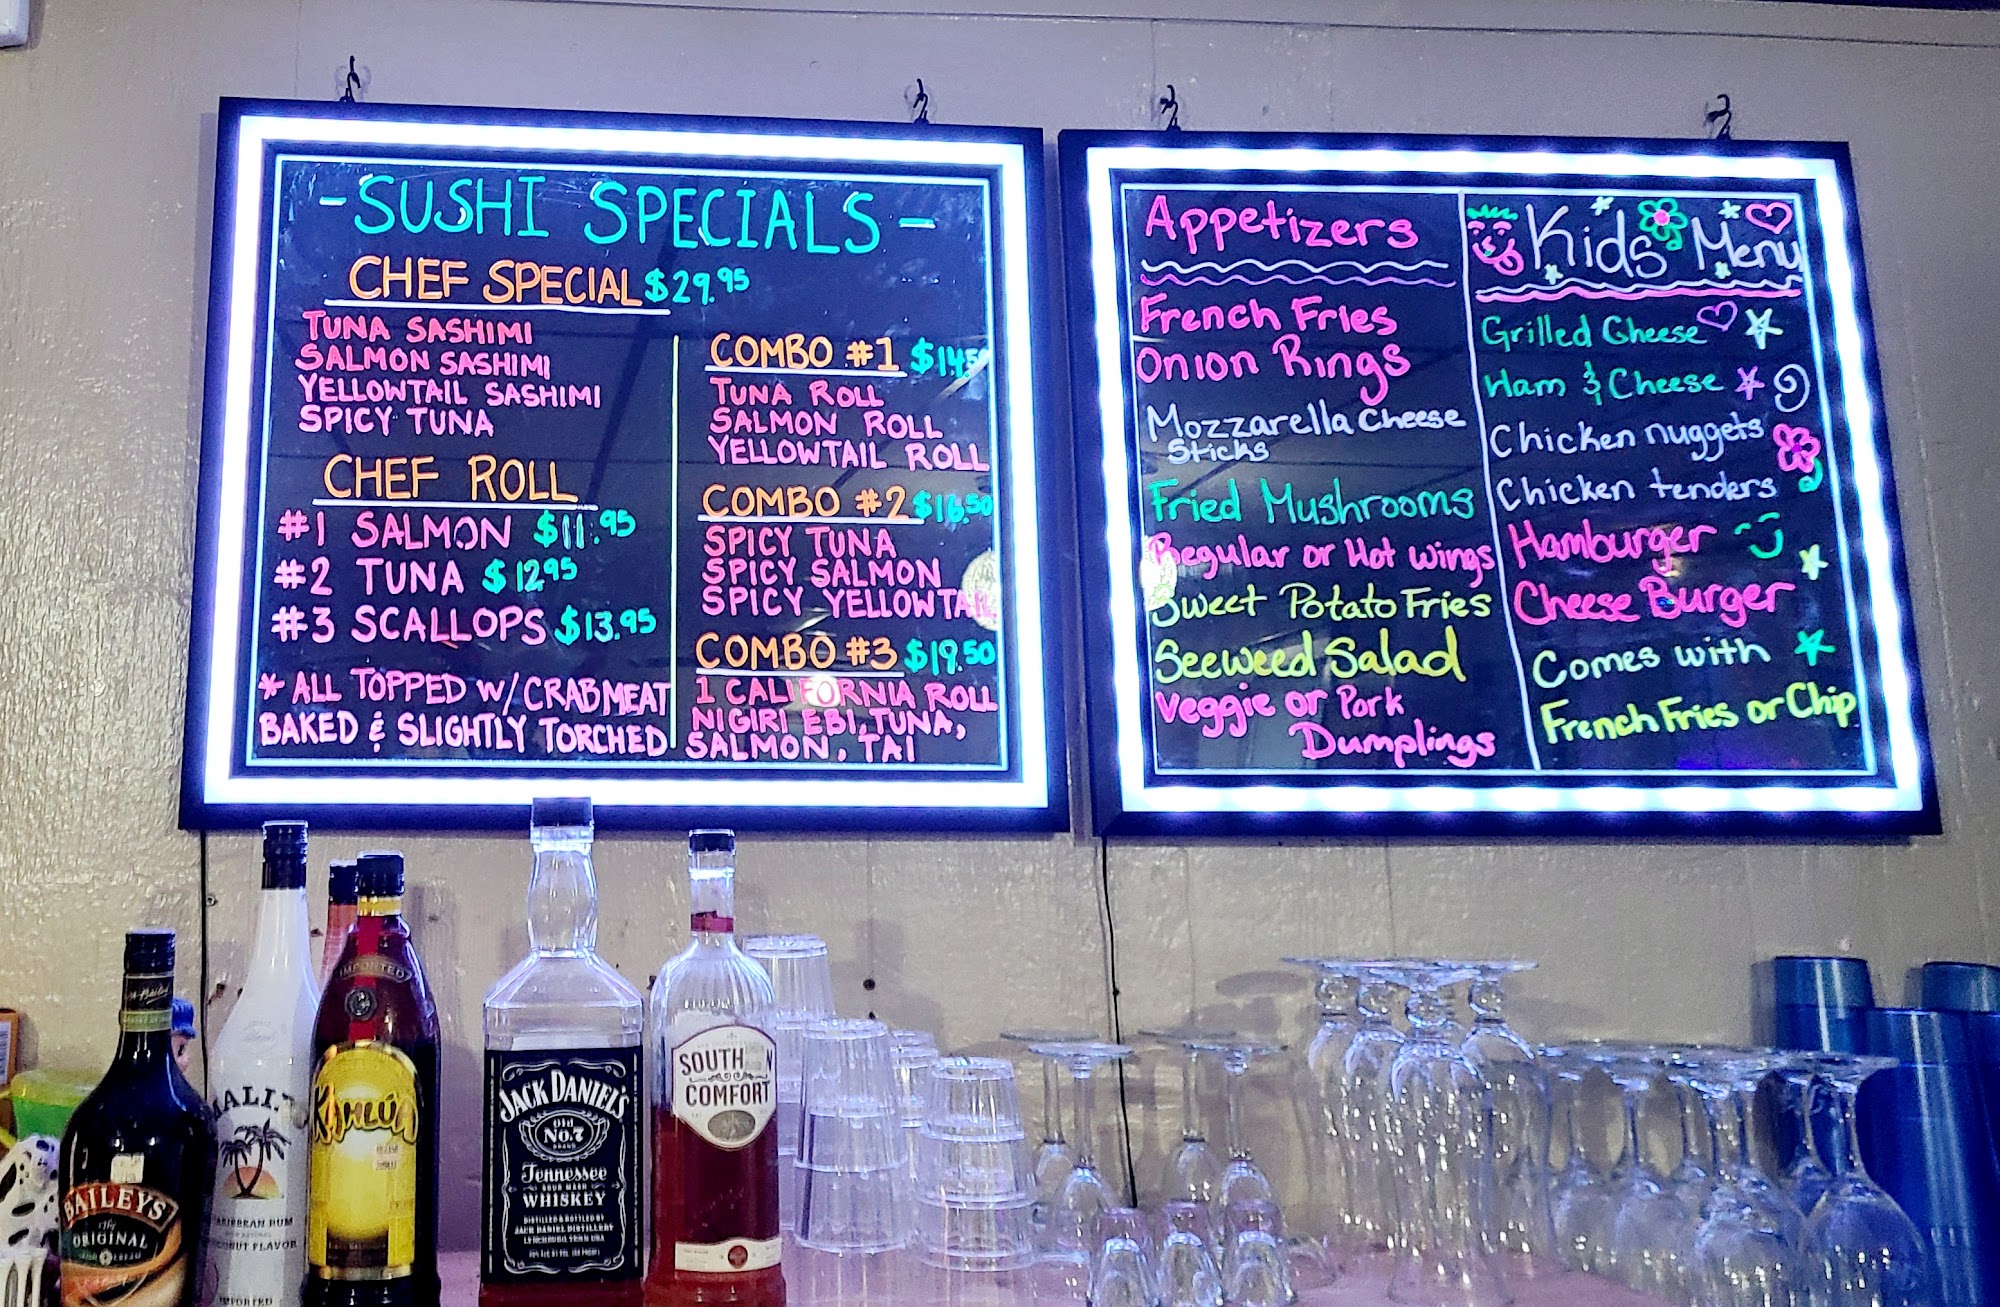 - SUSHI SPECIALS -
CHEF SPECIAL $29.95
TUNA SASHIMI
SALMON SASHIMI
YELLOWTAIL SASHIMI
SPICY TUNA
CHEF ROLL
#1 SALMON $11.95
#2 TUNA $12.95
#3 SCALLOPS $13.95
* ALL TOPPED W/ CRABMEAT
BAKED & SLIGHTLY TORCHED
COMBO #1 $14.50
TUNA ROLL
SALMON ROLL
YELLOWTAIL ROLL
COMBO #2 $16.50
SPICY TUNA
SPICY SALMON
SPICY YELLOWTAIL
COMBO #3 $19.50
1 CALIFORNIA ROLL
NIGIRI EBI, TUNA,
SALMON, TAI
Appetizers
French Fries
Onion Rings
Mozzarella Cheese
Sticks
Fried Mushrooms
Regular or Hot Wings
Sweet Potato Fries
Seeweed Salad
Veggie or Pork
Dumplings
Kids Menu
Grilled Cheese
Ham & Cheese
Chicken nuggets
Chicken tenders
Hamburger
Cheese Burger
Comes with
French Fries or Chip
BAILEYS
The
ORIGINAL
MALI
CARIBBEAN RUM
COCONUT FLAVOR
IMPORTED
IMPORTED
KAHLÚA
JACK DANIEL'S
Old
No.7
BRAND
Tennessee
SOUR MASH
WHISKEY
DISTILLED & BOTTLED BY
JACK DANIEL DISTILLERY
LYNCHBURG, TENN USA
SOUTH N
COMFORT